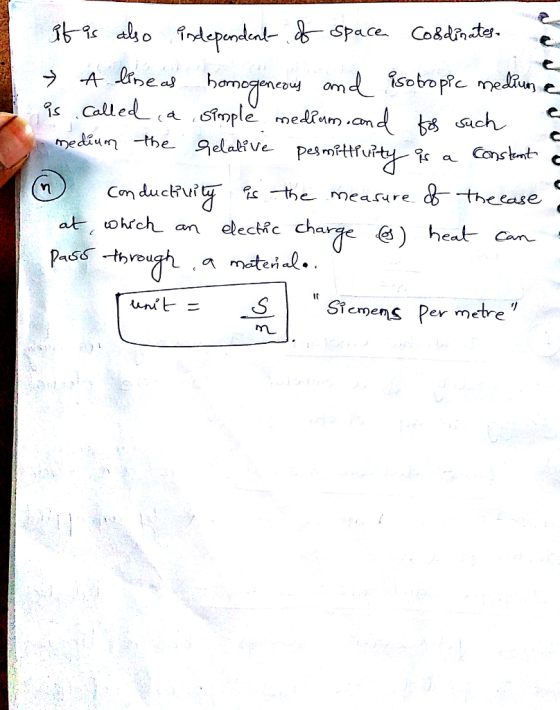 It is also independent of space Coordinates.
→ A linear homogeneous and isotropic medium
is called a simple medium.and for such
medium the relative permittivity is a constant
(n) Conductivity is the measure of the ease
at which an electric charge (or) heat can
pass through a material..
unit = S/m "Siemens per metre"